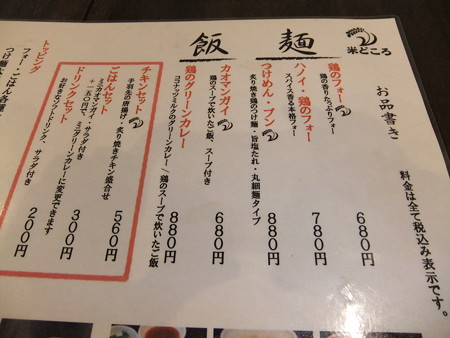 米ところ
お品書き
料金は全て税込み表示です。
麺
鶏のフォー
鶏の香りたっぷりフォー
680円
ハノイ・鶏のフォー
スパイス香る本格フォー
780円
つけめん・ブン
炙り焼き鶏のつけ麺・旨塩たれ・丸細麺タイプ
880円
飯
カオマンガイ
鶏のスープで炊いたご飯、スープ付き
680円
鶏のグリーンカレー
ココナッツミルクのグリーンカレー/鶏のスープで炊いたご飯
880円
チキンセット
手羽先の唐揚げ・炙り焼きチキン盛合せ
560円
ごはんセット
ミニカオマンガイ・サラダ付き
+一五〇円で、ミニグリーンカレーに変更できます
300円
ドリンクセット
お好きなソフトドリンク、サラダ付き
200円
トッピング
フォー・ごはん各種
つけ麺